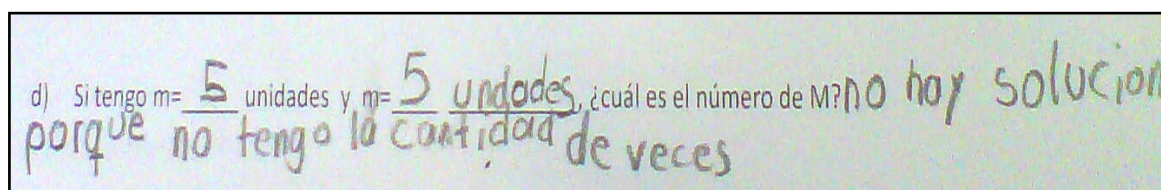 d) Si tengo m= 5 unidades y m= 5 undades, ¿cuál es el número de M? no hay solucion
porque no tengo la cantidad de veces